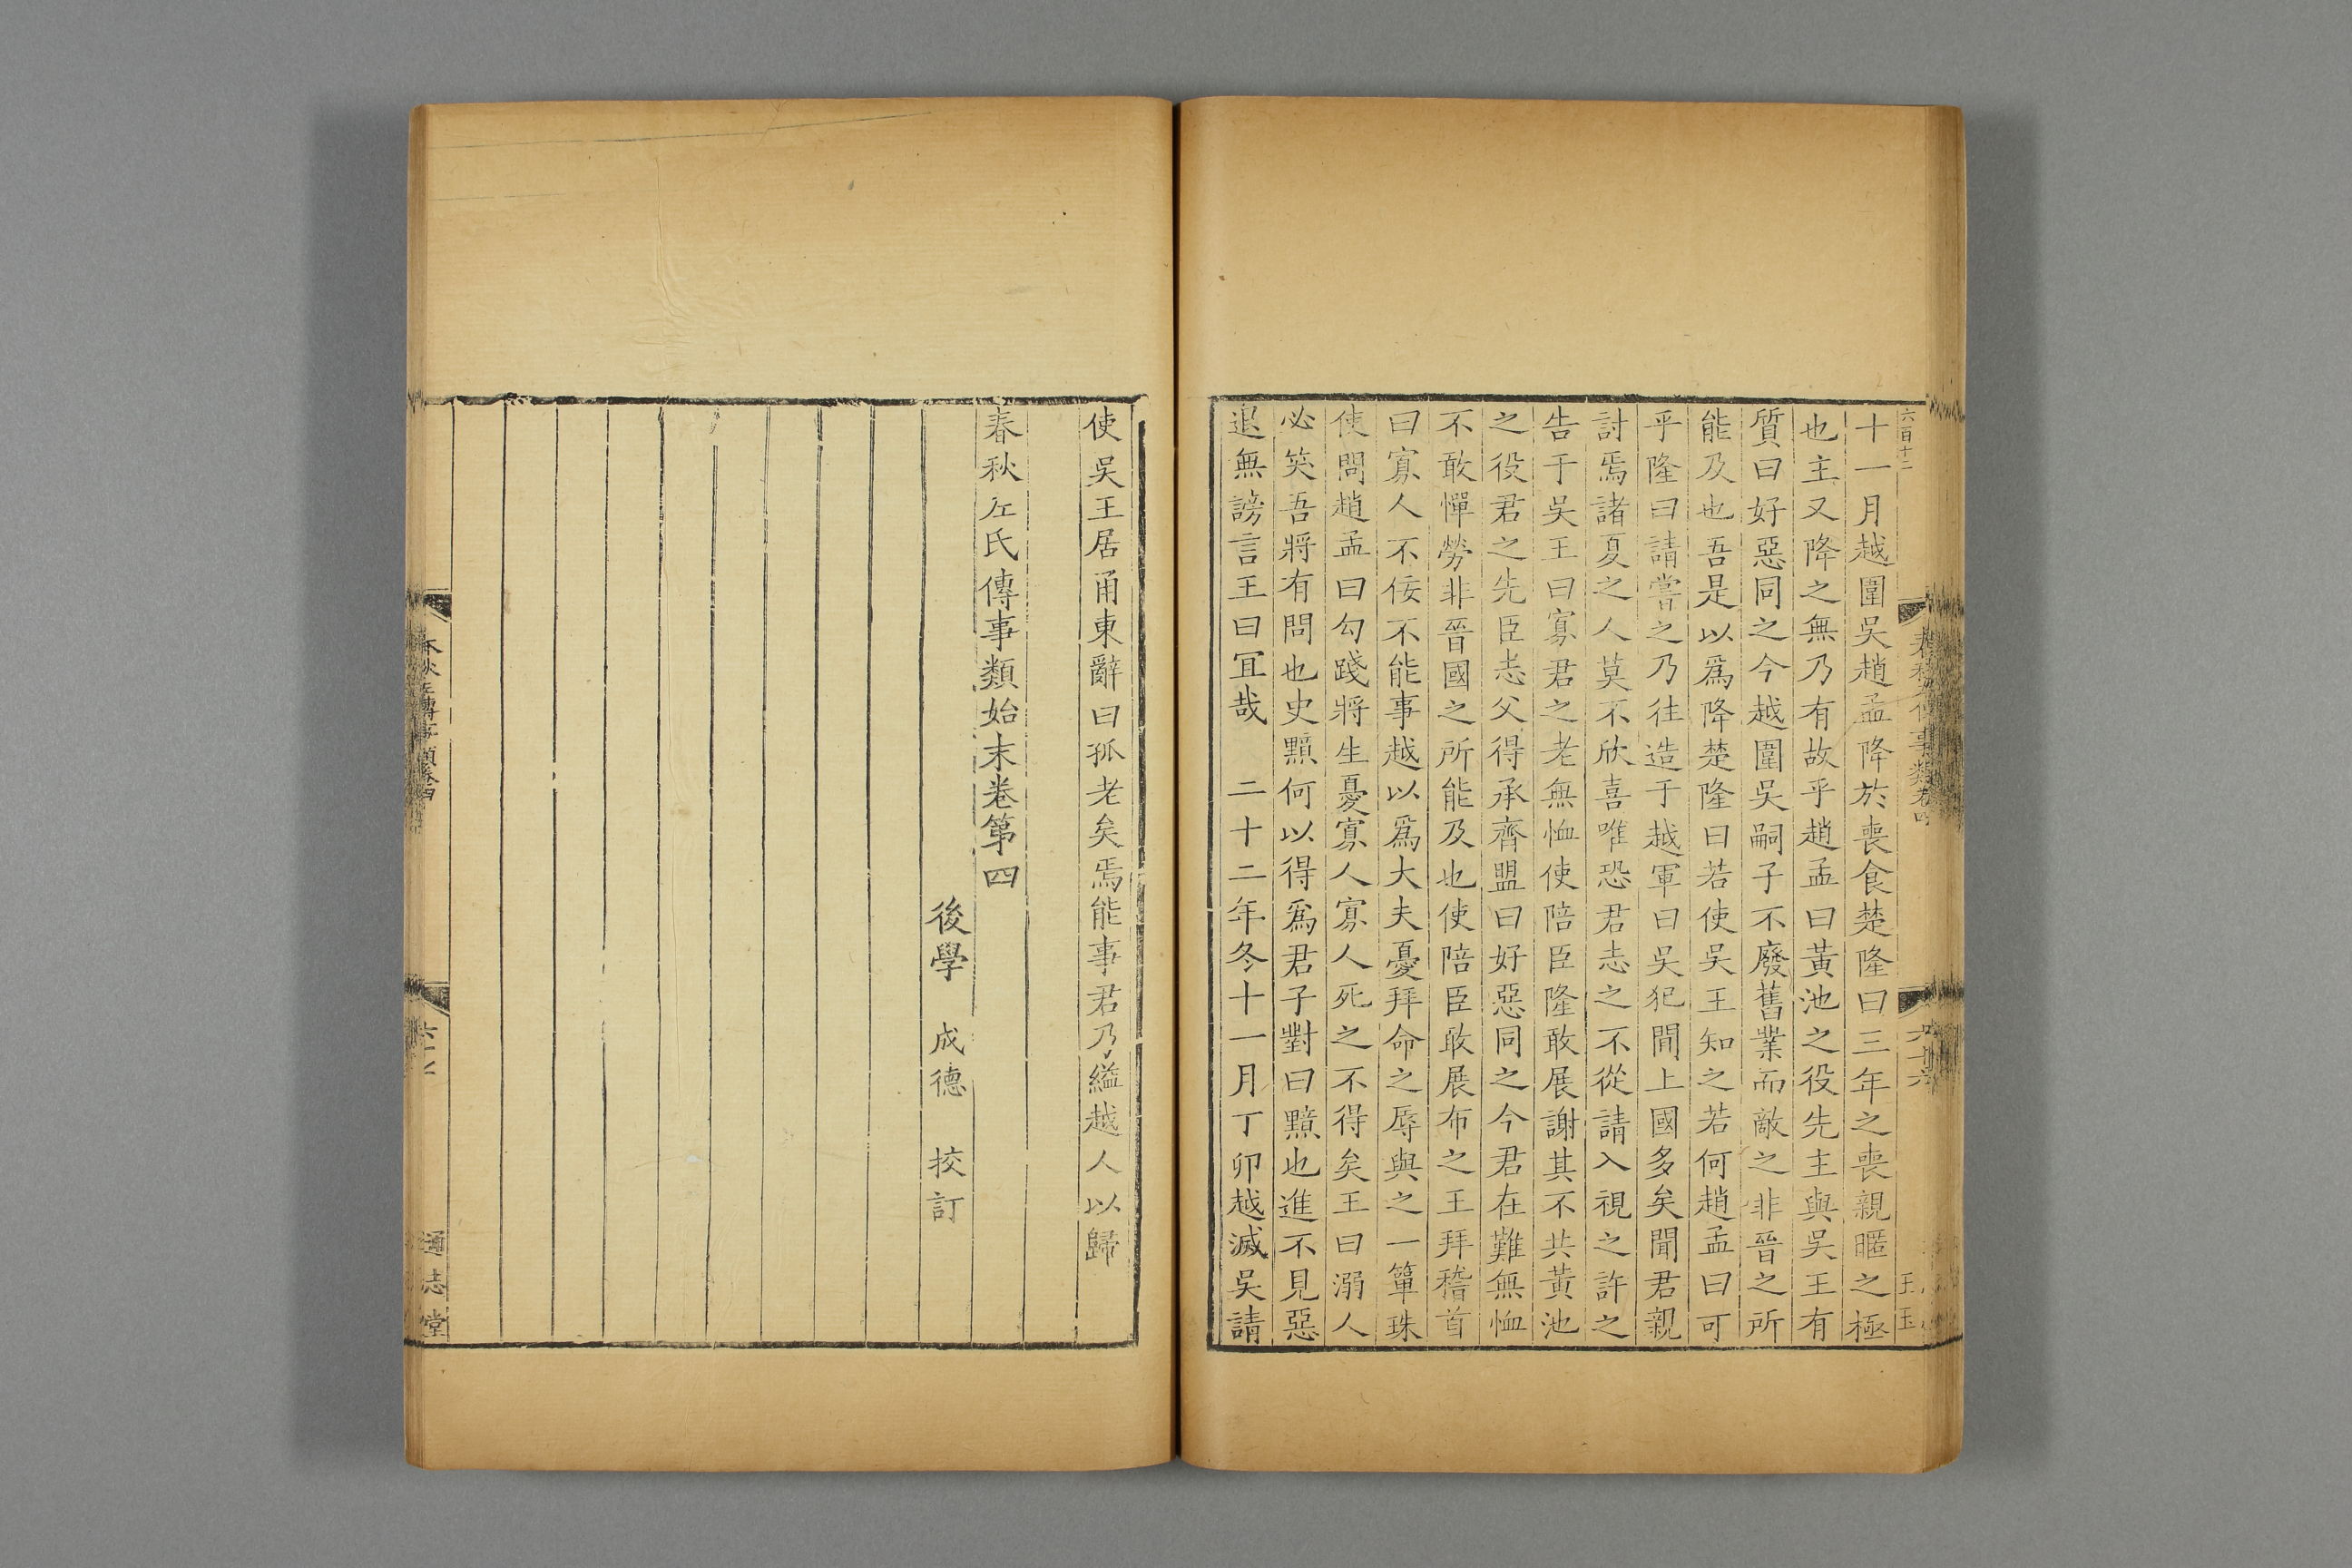 六百十二
十一月越圍吳趙孟降於喪食楚隆曰三年之喪親暱之極
也主又降之無乃有故乎趙孟曰黃池之役先主與吳王有
質曰好惡同之今越圍吳嗣子不廢舊業而敵之非晉之所
能及也吾是以爲降楚隆曰若使吳王知之若何趙孟曰可
乎隆曰請嘗之乃往造于越軍曰吳犯間上國多矣聞君親
討焉諸夏之人莫不欣喜唯恐君志之不從請入視之許之
告于吳王曰寡君之老無恤使陪臣隆敢展謝其不共黃池
之役君之先臣志父得承齊盟曰好惡同之今君在難無恤
不敢憚勞非晉國之所能及也使陪臣敢展布之王拜稽首
曰寡人不佞不能事越以爲大夫憂拜命之辱與之一簞珠
使問趙孟曰勾踐將生憂寡人寡人死之不得矣王曰溺人
必笑吾將有問也史黯何以得爲君子對曰黯也進不見惡
退無謗言王曰宜哉　二十二年冬十一月丁卯越滅吳請
春秋左傳事類卷四
六十六
王玉
使吳王居甬東辭曰孤老矣焉能事君乃縊越人以歸
春秋左氏傳事類始末卷第四
後學　成德　挍訂
春秋左傳事類卷四
通志堂